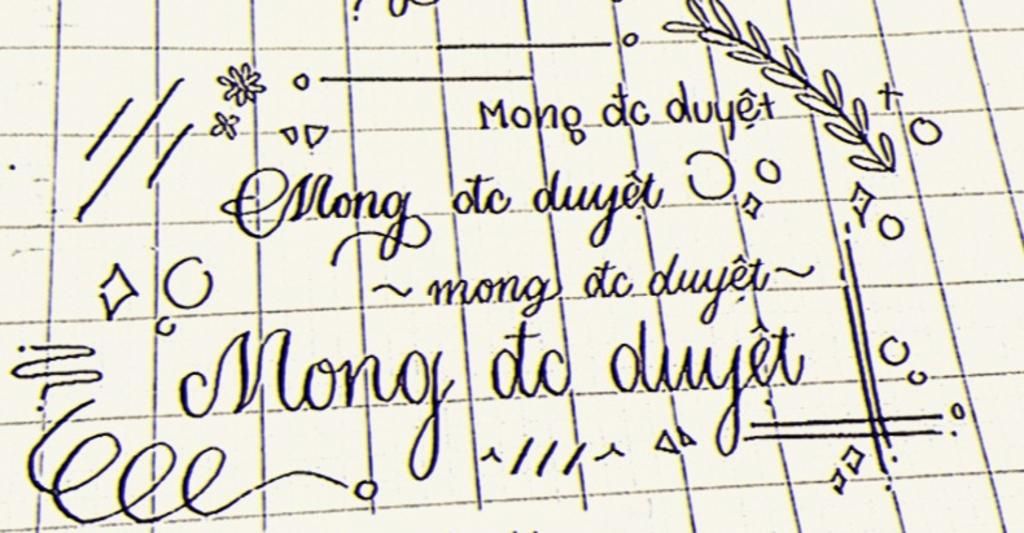 Mong đc duyệt
Mong đc duyệt
~ mong đc duyệt ~
Mong đc duyệt